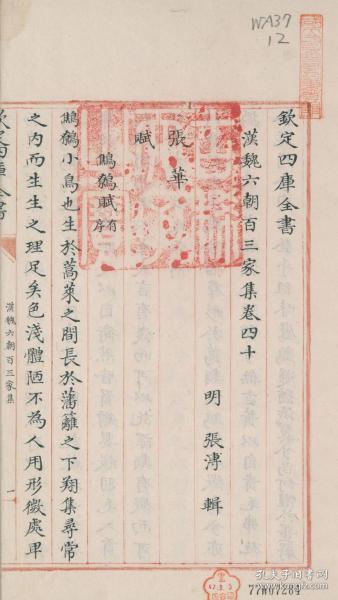 WA37
12
欽定四庫全書
漢魏六朝百三家集卷四十
明 張溥 輯
張華
賦
鷦鷯賦有序
鷦鷯小鳥也生於蒿萊之間長於藩籬之下翔集尋常
之内而生生之理足矣色淺體陋不為人用形微處卑
漢魏六朝百三家集
一
孔夫子旧书网